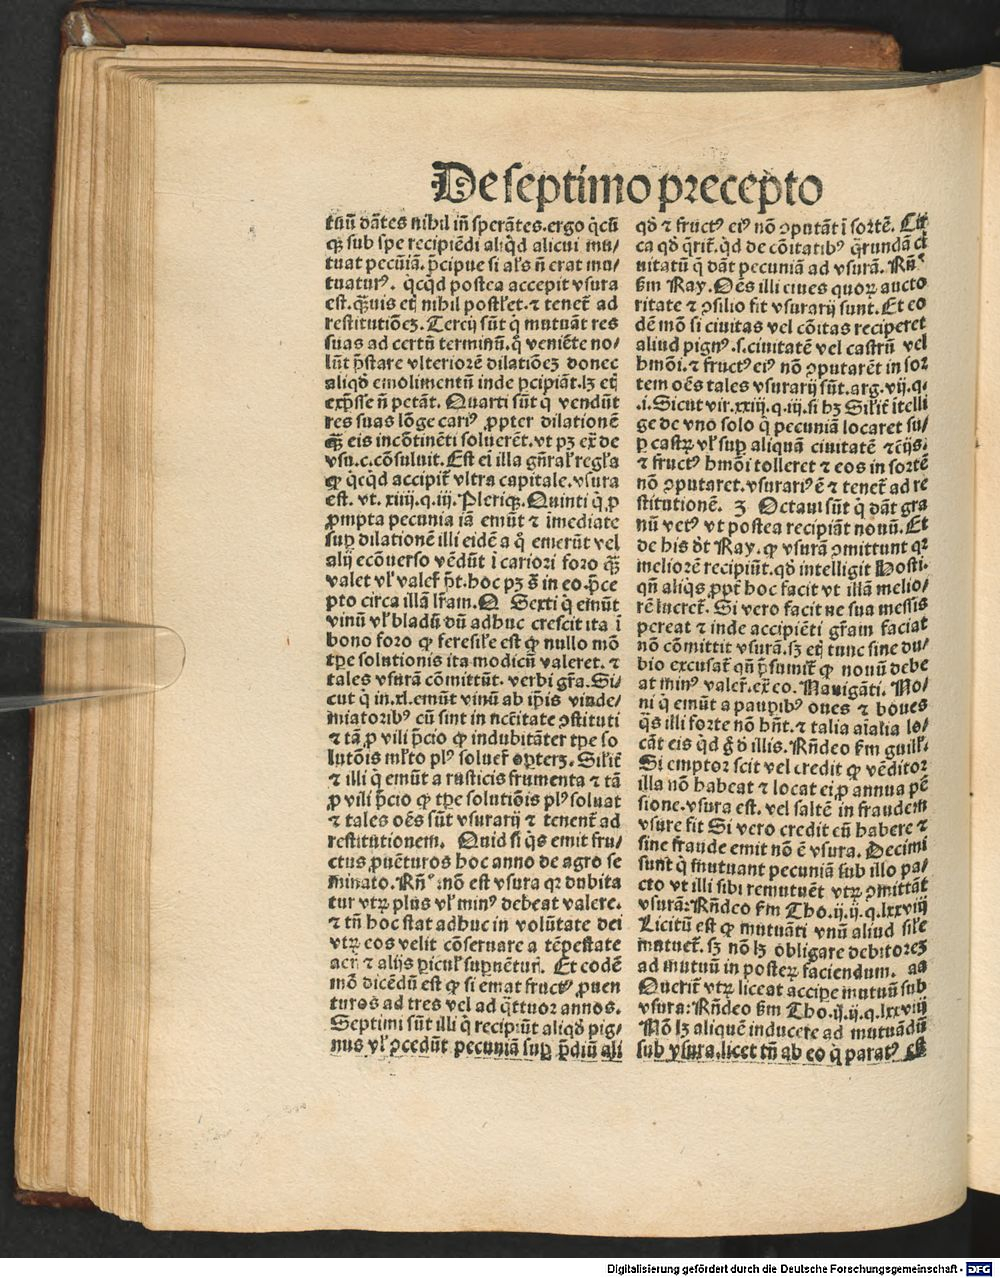 De septimo precepto
tuū dātes nihil iñ sperātes. ergo q̇cū
qꝫ sub spe recipiēdi aliq̇d alicui mu/
tuat pecūiā. p̄cipue si al̓s ñ erat mu/
tuaturꝰ. q̇cq̇d postea accepit vsura
est. q̄ꝫuis eꝫ nihil postl̓et. ⁊ tenet̃ ad
restitutiōeꝫ. Tercij sūt q̇ mutuāt res
suas ad certū terminū. q̇ veniēte no/
lūt p̄stare vlteriorē dilatiōeꝫ donec
aliqḋ emolimentū inde ꝑcipiāt. lꝫ eꝫ
exp̄sse ñ petāt. Quarti sūt q̇ vendūt
res suas lōge cariꝰ ꝓpter dilationē
q̄ꝫ eis incōtinēti soluerēt. vt pꝫ ex̃ de
vsu. c. cōsuluit. Est eī illa gn̄ral̓ regl̓a
ꝙ q̇cq̇d accipit̃ vltra capitale. vsura
est. vt. xiiij. q. iij. Pleriqꝫ. Quinti q̇ ꝓ
ꝓmpta pecunia iā emūt ⁊ īmediate
suꝑ dilationē illi eidē a q̇ emerūt vel
alij ecōuerso vēdūt ī cariori foro q̄ꝫ
valet vl̓ valet̃ p̄t. hoc pꝫ s̄ in eo. p̄ce
pto circa illā lr̃am. O Sexti q̇ emūt
vinū vl̓ bladū dū adhuc crescit ita ī
bono foro ꝙ feresil̓e est ꝙ nullo mō
tꝑe solutionis ita modicū valeret. ⁊
tales vsurā cōmittūt. verbi gr̃a. Si/
cut q̇ in. xl. emūt vinū ab ip̄is vinde/
miatoribꝰ cū sint in nc̄citate ꝯstituti
⁊ tā ꝓ vili p̄cio ꝙ indubitāter tꝑe so
lutōis ml̓to plꝰ soluet̃ oꝑterꝫ. Sil̓it̃
⁊ illi q̇ emūt a rusticis frumenta ⁊ tā
ꝓ vili p̄cio ꝙ tꝑe solutiōis plꝰ soluat
⁊ tales oēs sūt vsurarij ⁊ tenent̃ ad
restitutionem. Quid si q̇s emit fru/
ctus ꝓuēturos hoc anno de agro se
minato. Rñ. mō est vsura qꝛ dubita
tur vtꝝ plus vl̓ minꝰ debeat valere.
⁊ tñ hoc stat adhuc in volūtate dei
vtꝝ eos velit cōseruare a tēpestate
aeris ⁊ alijs ꝑicul̓ suꝑuētur̃. Et eodē
mō dicēdū est ꝙ si emat fructꝰ ꝓuen
turos ad tres vel ad q̄ttuor annos.
Septimi sūt illi q̇ recipiūt aliqḋ pig/
nus vl̓ ꝯcedūt pecuniā suꝑ p̄diū ali
qḋ ⁊ fructꝰ eiꝰ nō ꝯputāt ī sortē. Cir
ca qḋ q̄rit̃. q̇d de cōitatibꝰ q̄rundā ci
uitatū q̇ dāt pecuniā ad vsurā. Rñ.
ẜm Ray. Oēs illi ciues quoꝝ aucto
ritate ⁊ ꝯsilio fit vsurarij sunt. Et eo
dē mō si ciuitas vel cōitas reciperet
aliud pignꝰ. s. ciuitatē vel castrū vel
hmōi. ⁊ fructꝰ eiꝰ nō ꝯputarēt in sor
tem oēs tales vsurarij sūt. arg. vij. q.
.i. Sicut vir. xxiij. q. iij. si hꝫ Sil̓it̃ ītelli
ge de vno solo q̇ pecuniā locaret su/
ꝑ castꝝ vl̓ suꝑ aliquā ciuitatē ⁊ c̄ijs.
⁊ fructꝰ hmōi tolleret ⁊ eos in sortē
nō ꝯputaret. vsurariꝰ ē ⁊ tenet̃ ad re
stitutionē. 3 Octaui sūt q̇ dāt gra
nū vetꝰ vt postea recipiāt nouū. Et
de his dt̃ Ray. ꝙ vsurā ꝯmittunt qꝛ
meliorē recipiūt. qḋ intelligit Hosti.
qñ aliq̇s ꝓpt̃ hoc facit vt illā melio/
rē lucret̃. Si vero facit ne sua messis
pereat ⁊ inde accipiēti gr̃am faciat
nō cōmittit vsurā. sꝫ eꝫ tunc sine du/
bio excusat̃ qñ p̄sumit̃ ꝙ nouū debe
at minꝰ valer̃. ex̃ eo. Nauigāti. No/
ni q̇ emūt a pauꝑibꝰ oues ⁊ boues
q̄s illi forte nō hñt. ⁊ talia aīalia lo/
cāt eis q̇d g̊ ḋ illis. Rñdeo ẜm guil̓.
Si emptor scit vel credit ꝙ vēditor
illa nō habeat ⁊ locat ei ꝓ annua pē
sione. vsura est. vel saltē in fraudem
vsure fit Si vero credit eū habere ⁊
sine fraude emit nō ē vsura. Decimi
sunt q̇ mutuant pecuniā sub illo pa/
cto vt illi sibi remutuēt vtꝝ ꝯmittāt
vsurā: Rñdeo ẜm Tho. ij. ij. q. lxxviij
Licitū est ꝙ mutuāti vnū aliud sil̓e
mutuet̃. sꝫ nō lꝫ obligare debitoreꝫ
ad mutuū in posteꝝ faciendum. aa
Querit̃ vtꝝ liceat accipe mutuū sub
vsura: Rñdeo ẜm Tho. ij. ij. q. lxxviij
Nō lꝫ aliquē inducere ad mutuādū
sub vsura. licet tñ ab eo q̇ paratꝰ est
Digitalisierung gefördert durch die Deutsche Forschungsgemeinschaft - DFG